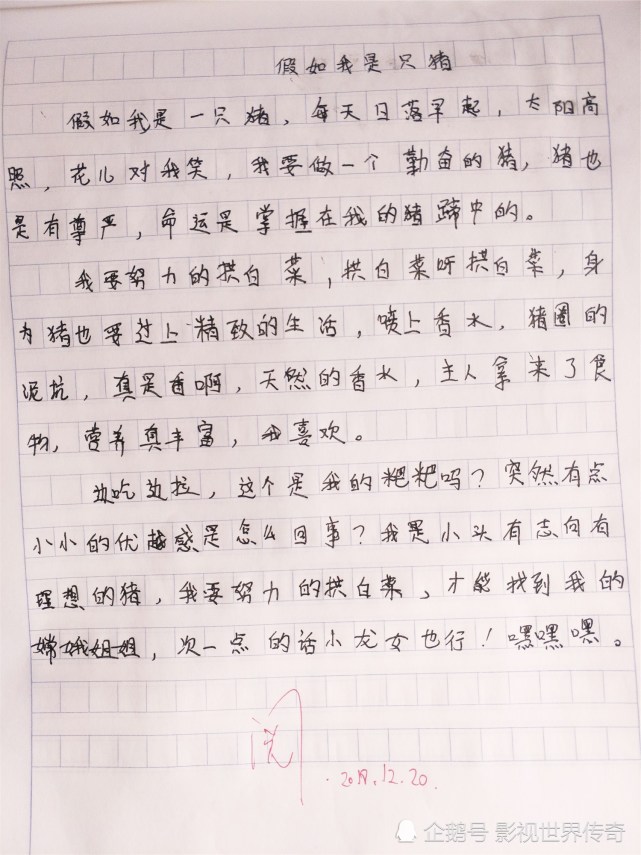 假如我是只猪
假如我是一只猪，每天日落早起，太阳高
照，花儿对我笑，我要做一个勤奋的猪，猪也
是有尊严，命运是掌握在我的猪蹄中的。
我要努力的拱白菜，拱白菜呀拱白菜，身
为猪也要过上精致的生活，喷上香水，猪圈的
泥坑，真是香啊，天然的香水，主人拿来了食
物，营养真丰富，我喜欢。
边吃边拉，这个是我的粑粑吗？突然有点
小小的优越感是怎么回事？我是小头有志向有
理想的猪，我要努力的拱白菜，才能找到我的
嫦娥姐姐，次一点的话小龙女也行！嘿嘿嘿。
阅
企鹅号 影视世界传奇